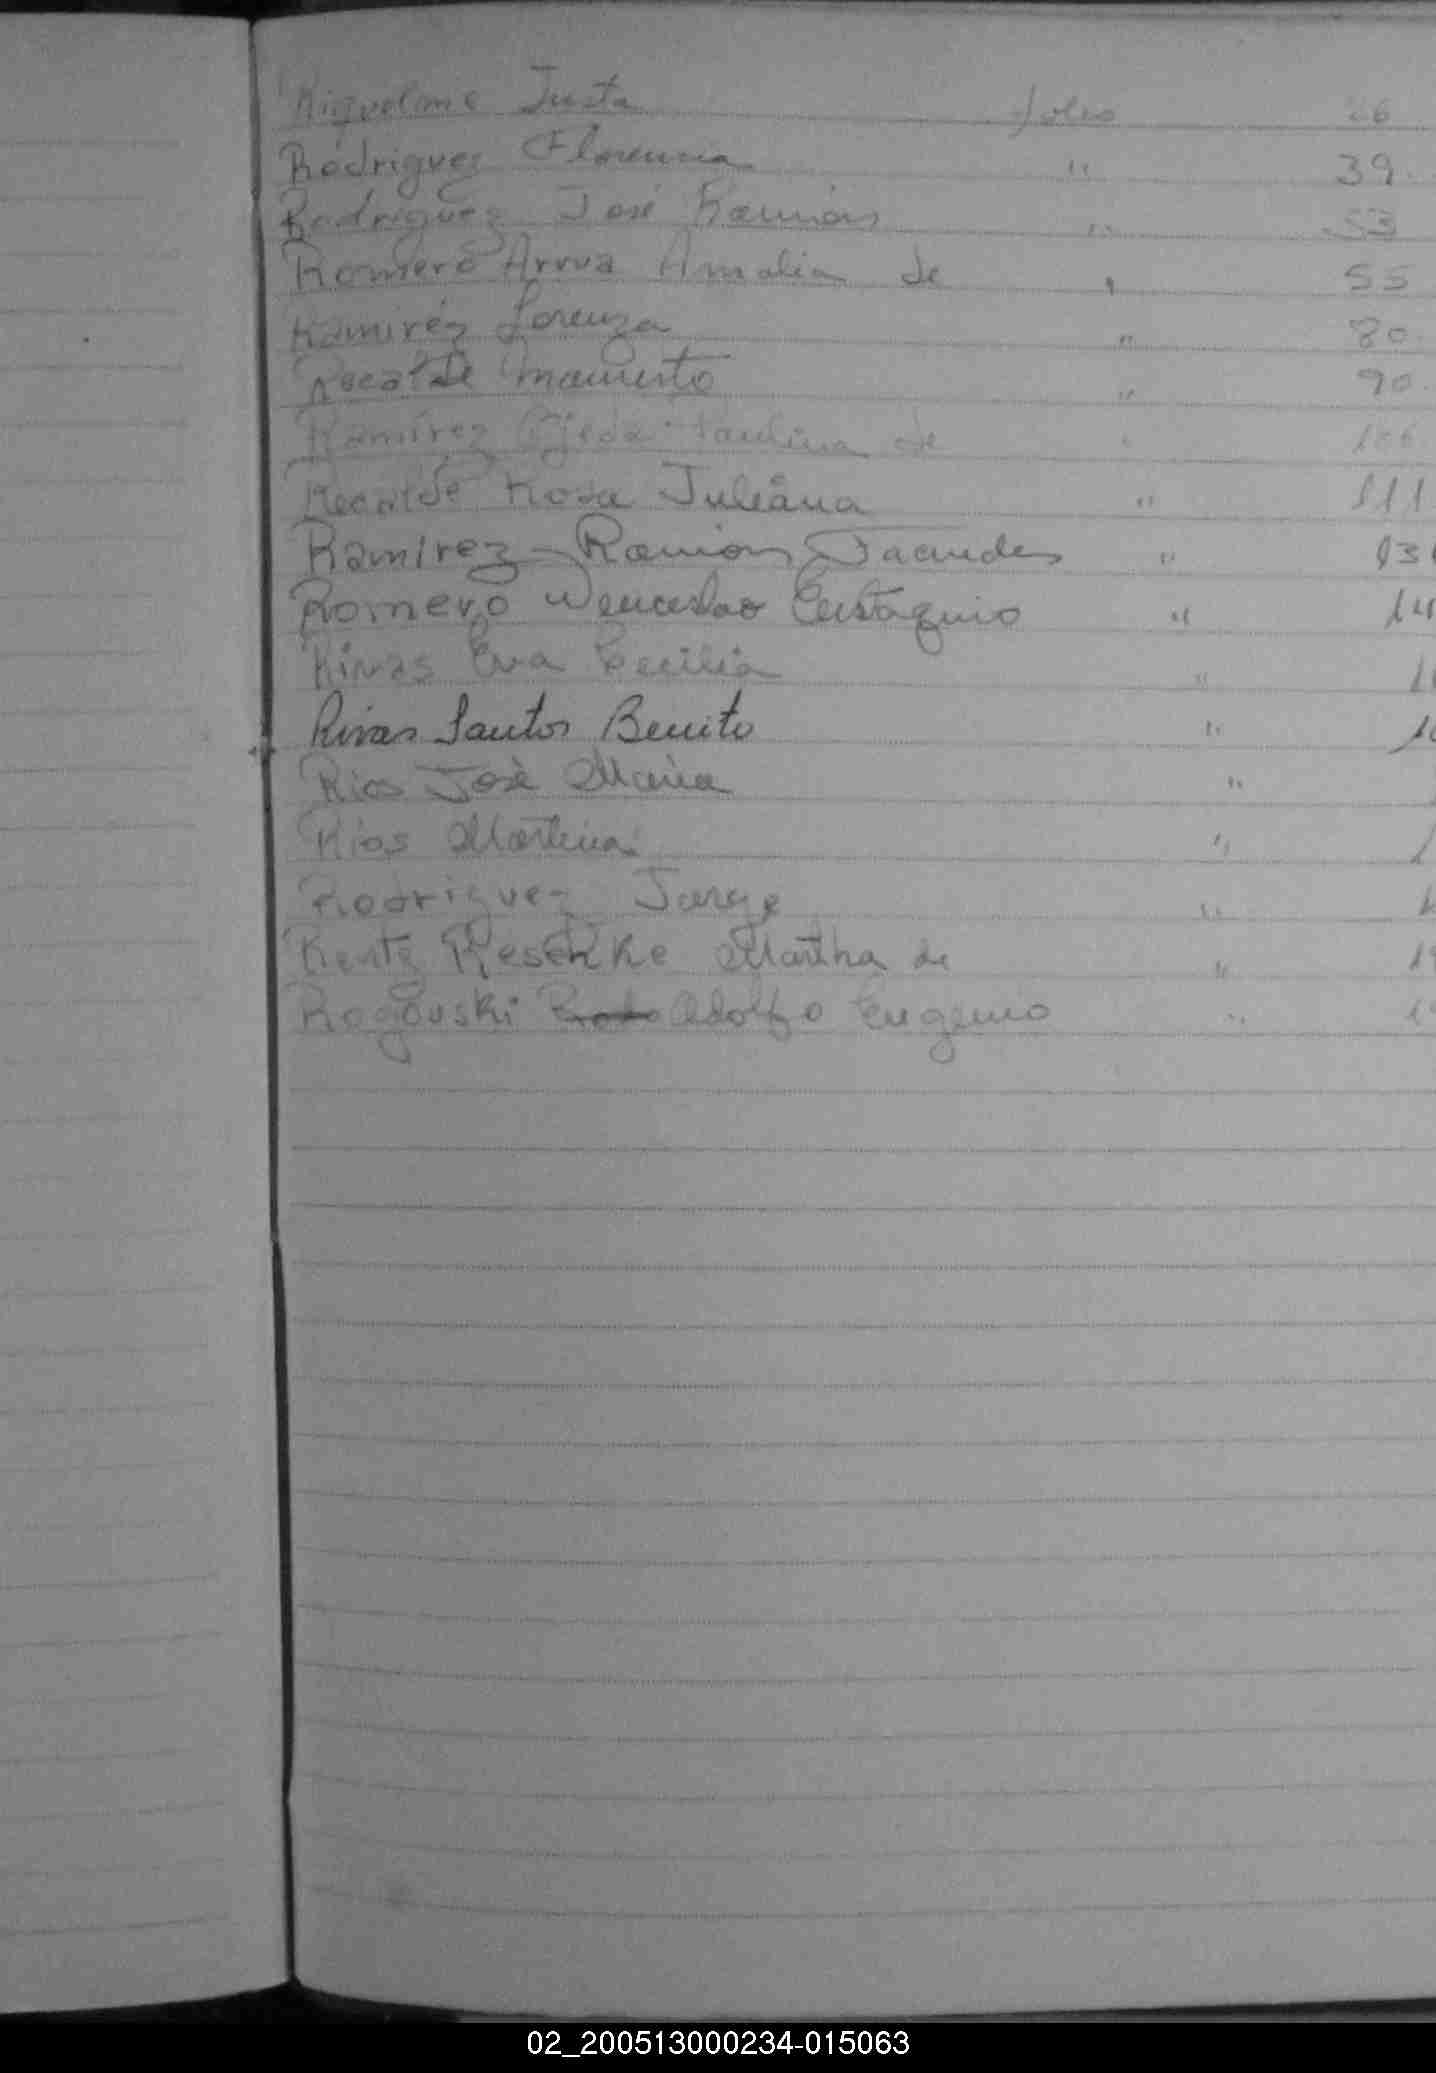 Riquelme Justa folio 26
Rodriguez Florencia " 39.
Rodriguez José Ramón " 53
Romero Arrua Amalia de " 55
Ramírez Lorenza " 80.
Recalde Inamento " 90.
Ramírez Ojeda Paulina de " 106
Recalde Rosa Juliana " 111
Ramírez Ramón Facundes " 13
Romero Wenceslao Eustaquio " 14
Rivas Eva Cecilia " 1
Rivas Santos Benito " 1
Rios José Maria "
Rios Martina "
Rodriguez Jorge "
Rentz Reschke Martha de " 1
Rogouski Adolfo Eugenio " 1
02_200513000234-015063